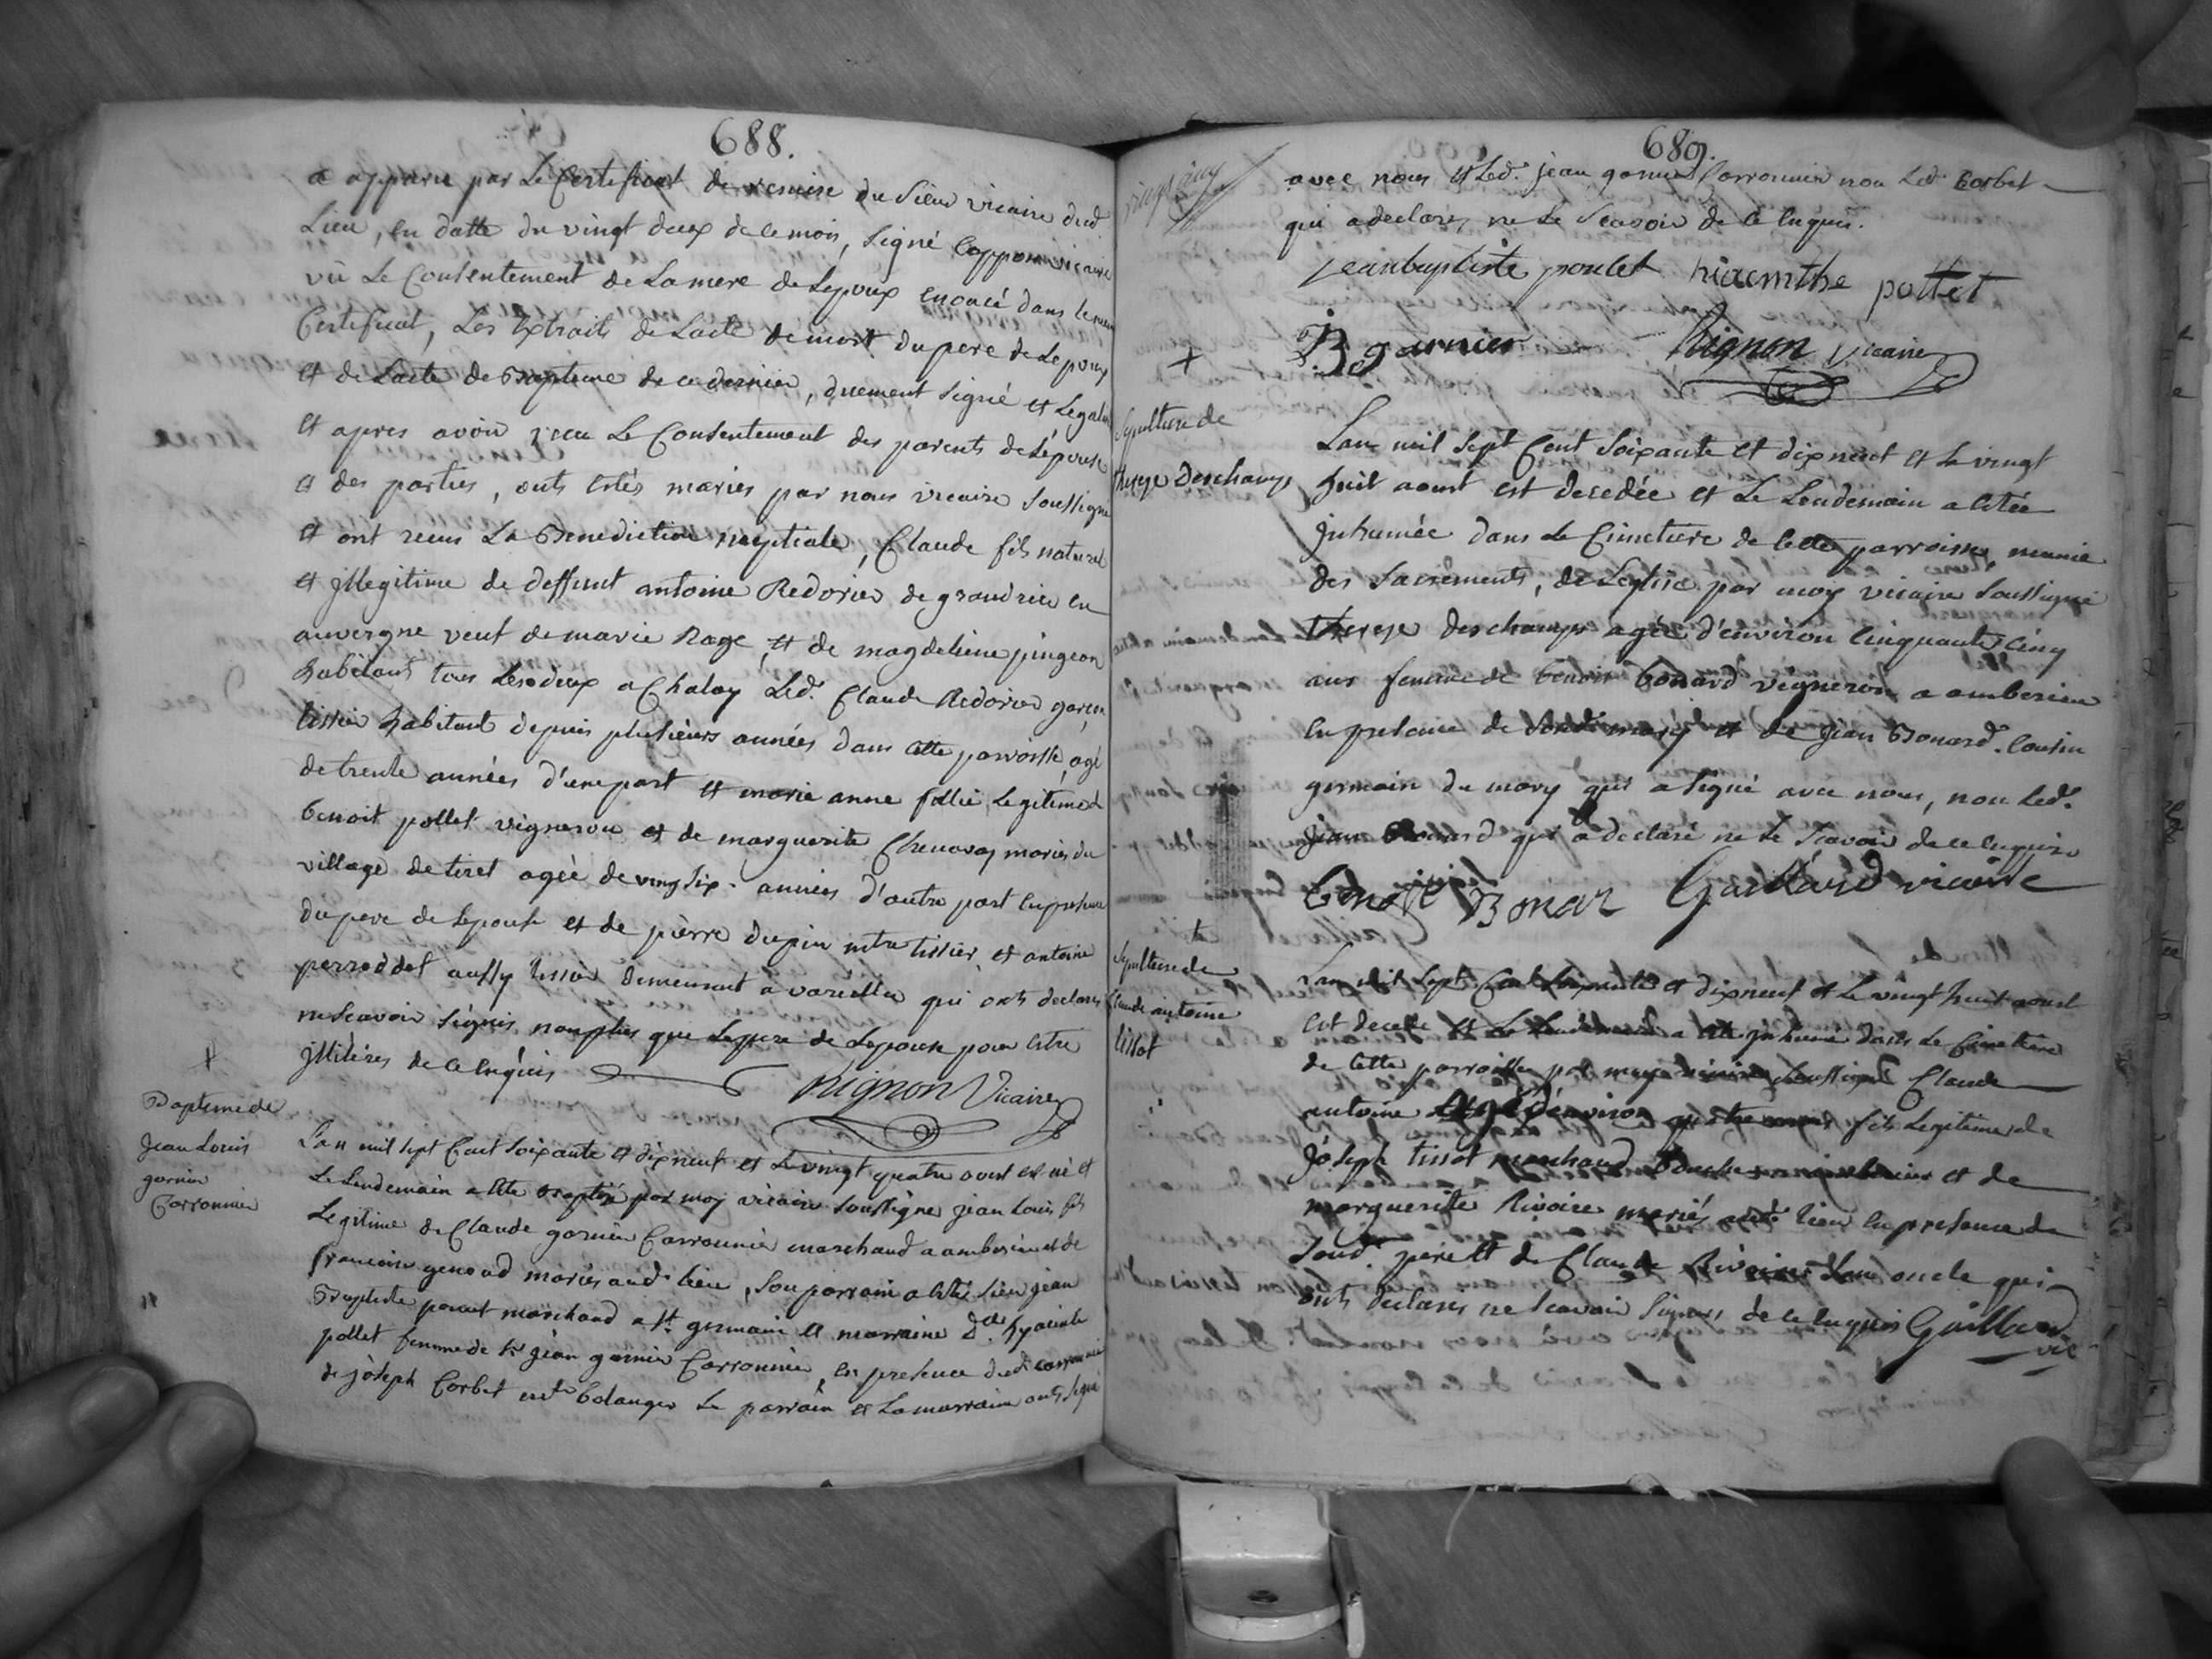 688.
a apparu par Le Certificat de remise du Sieur vicaire dud
Lieu, en datte du vingt deux de ce mois, signé vicaire
vü Le Consentement de La mere de Lepoux enoncé dans le
Certificat, Les Extraits de Lacte de mort du pere de Lepoux
et de Lacte de Bapteme de ce dernier, duement signé et Legalisé
et apres avoir recu Le Consentement des parents de Lépouse
et des parties, onts estés mariés par nous vicaire Soussigné
et ont receus La Benediction nuptiale, Claude fils naturel
et jllegitime de deffunt antoine Redorier de grandrieu en
auvergne veuf de marie Rage, et de magdeleine pingeon
habitans tous Les deux a Chaloy Led. Claude Redorier garcon
tissier habitant depuis plusieurs années dans cette parroisse, agé
de trente années d'une part et marie anne fille Legitime d
benoit pollet vigneron et de marguerite Chenavaz mariés du
village de tiret agée de vingt six années d'autre part en presence
du pere de Lepouse et de pierre dupin mtre tissier, et antoine
perroddet aussy tissier demeurant a vareilles qui onts declarés
ne Scavoir signer, non plus que Le pere de Lepouse pour être
jlliterés de ce enquis
Mignon Vicaire
+
Bapteme de
Jean Louis
garnier
Carronnier
L'an mil sept Cent soixante et dixneuf et Le vingt quatre aoust est né et
Le Lendemain a ete Baptisé par moy vicaire soussigné jean Louis fils
Legitime de Claude garnier Carronnier marchand a amberieu et de
francoise genoud mariés aud. lieu, son parrain a eté sieur jean
Baptiste poncet marchand a st. germain et marraine dlle. hyacinte
pollet femme de sr jean garnier Carronnier, en presence dud carronnier
de joseph Corbet mtre bolanger Le parrain et La marraine onts signé
689.
vingt cinq
avec nous et Led. jean garnier Carronnier non Led. Corbet
qui a declaré ne Le Scavoir de ce enquis.
jeanbaptiste poncet hiacinthe pottet
B garnier Mignon vicaire
+
Sepulture de
therese Deschamps
Lan mil Sept Cent Soixante et dixneuf et Le vingt
huit aoust est decedée et Le Lendemain a etée
jnhumée dans Le Cimetiere de cette parroisse, munie
des Sacrements, de Leglise par moy vicaire Soussigné
therese deschamps agée d'environ cinquante cinq
ans femme de benoit bonard vigneron a amberieu
en presence de Sond. mary et de jean Bonard cousin
germain du mary qui a signé avec nous, non Led.
jean Bonard qui a declaré ne Le Scavoir de ce enquis
benoit Bonar Gaillard vicaire
+
Sepulture de
Claude antoine
tissot
Lan mil Sept Cent Soixante et dixneuf et Le vingt huit aoust
est decedé et Le Lendemain a eté jnhumé dans Le Cimetiere
de cette parroisse par moy vicaire soussigné Claude
antoine agé d'environ quatre mois fils Legitime de
Joseph tissot marchand et de
marguerite Rivoire mariés aud. lieu en presence de
Sond. pere et de Claude Rivoire Son oncle qui
onts declarés ne Scavoir Signer de ce enquis Gaillard
vic